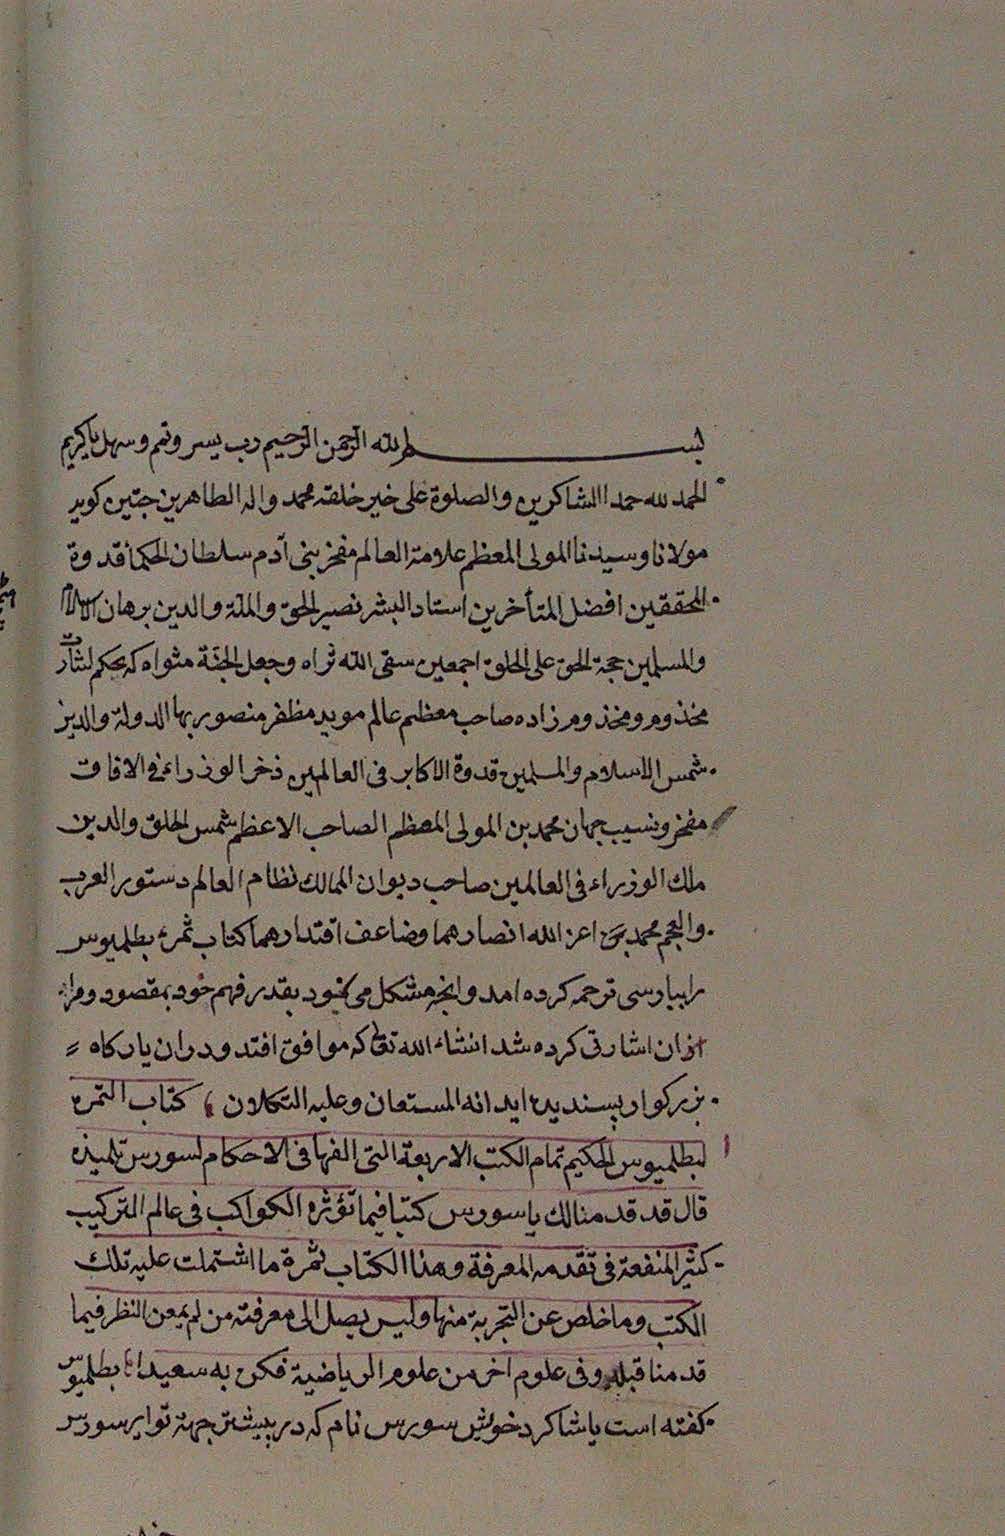 بسم الله الرحمن الرحیم رب یسر وتمم وسهل یا کریم
الحمد لله حمد الشاکرین والصلوة علی خیر خلقه محمد واله الطاهرین چنین کوید
مولانا وسیدنا المولی المعظم علامة العالم مفخر بنی آدم سلطان الحکما قدوة
المحققین افضل المتأخرین استاد البشر نصیر الحق والملة والدین برهان الاسلام
والمسلمین حجة الحق علی الخلق اجمعین سقی الله ثراه وجعل الجنة مثواه که بحکم اشارت
مخذوم ومخذوم زاده صاحب معظم عالم موید مظفر منصور بها الدولة والدین
شمس الاسلام والمسلمین قدوة الاکابر فی العالمین ذخر الوزراء فی الافاق
مفخر ونسیب جهان محمد بن المولی المعظم الصاحب الاعظم شمس الحلق والدین
ملك الوزراء فی العالمین صاحب دیوان الممالك نظام العالم دستور العرب
والعجم محمد اعز الله انصارهما وضاعف اقتدارهما کتاب ثمره بطلمیوس
را بپارسی ترجمه کرده امد وانچه مشکل می نمود بقدر فهم خود بمقصود ومراد
ازان اشارتی کرده شد انشاء الله تعا که موافق افتد ودران بارکاه
بزرکوار پسندیده اید انه المستعان وعلیه التکلان کتاب الثمره
لبطلمیوس الحکیم تمام الکتب الاربعة التی الفها فی الاحکام لسورس تلمیذه
قال قد قدمنا لك یا سورس کتبا فیما تؤثره الکواکب فی عالم الترکیب
کثیر المنفعة فی تقدمه المعرفة وهذا الکتاب ثمرة ما اشتملت علیه تلك
الکتب وما خلص عن التجربة منها ولیس یصل الی معرفته من لم یمعن النظر فیما
قدمنا قبله وفی علوم اخر من علوم الریاضیة فکن به سعیدا بطلمیوس
کفته است با شاکرد خویش سورس نام که در پیشتر جهة تو ای سورس